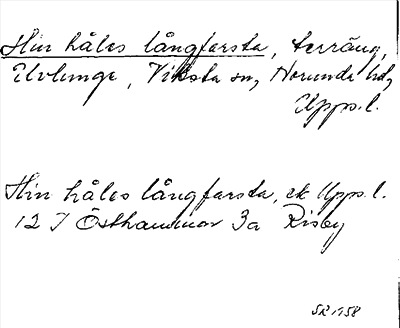 Hin håles långfarsta, terräng,
Ulvlunge, Viksta sn, Norunda hd,
Upps. l.
Hin håles långfarsta, ek Upps. l.
12 I Östhammar 3a Risby
SR 1958